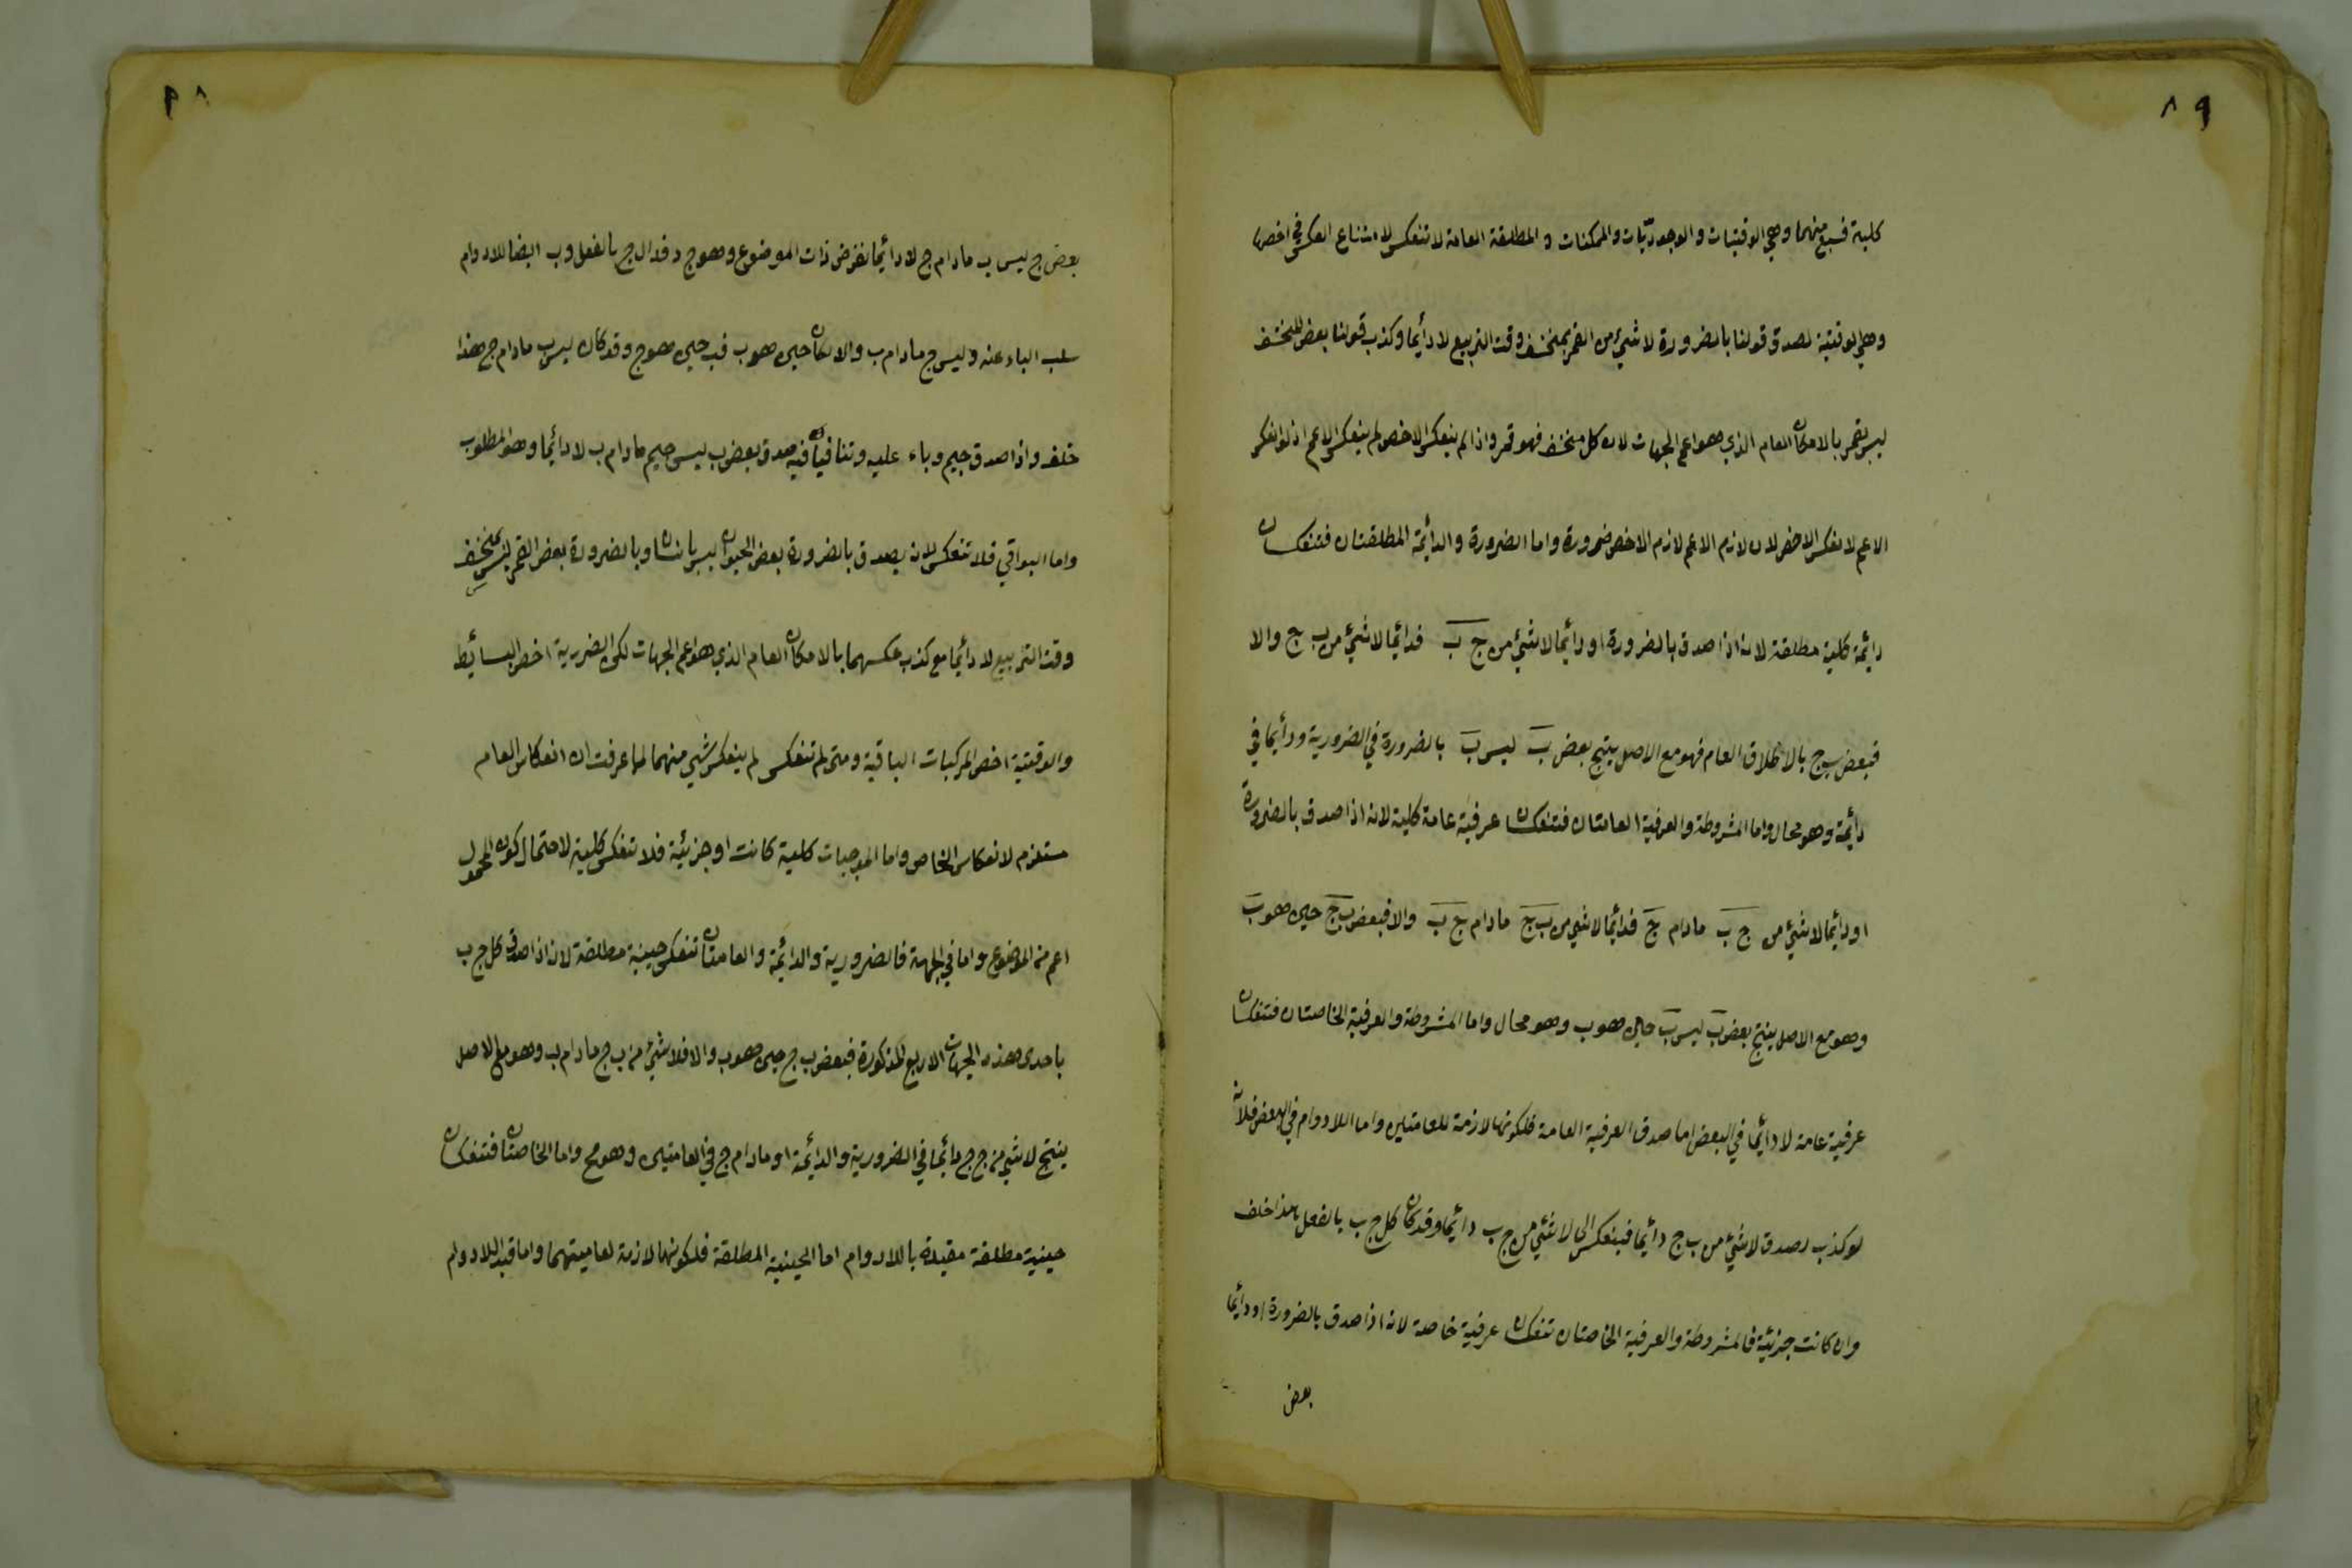 ٨٩
كلية فسبع منها وهي الوقتيات والوجوديات والممكنات والمطلقة العامة لا تنعكس لامتناع العكس في اخصها
وهي الوقتية لصدق قولنا بالضرورة لا شيء من القمر بمنخسف وقت التربيع لا دائما وكذب قولنا بعض المنخسف
ليس بقمر بالامكان العام الذي هو اعم الجهات لان كل منخسف فهو قمر واذا لم ينعكس الاخص لم ينعكس الاعم اذ لو انعكس
الاعم لانعكس الاخص لان لازم الاعم لازم الاخص ضرورة واما الضرورة والدائمة المطلقتان فتنعكسان
دائمة كلية مطلقة لانه اذا صدق بالضرورة او دائما لا شيء من ج ب فدائما لا شيء من ب ج والا
فبعض ب ج بالاطلاق العام فهو مع الاصل ينتج بعض ب ليس ب بالضرورة في الضرورية ودائما في
دائمة وهو محال واما المشروطة والعرفية العامتان فتنعكسان عرفية عامة كلية لانه اذا صدق بالضرورة
او دائما لا شيء من ج ب مادام ج فدائما لا شيء من ب ج مادام ج ب والا فبعض ب ج حين هو ب
وهو مع الاصل ينتج بعض ب ليس ب حين هو ب وهو محال واما المشروطة والعرفية الخاصتان فتنعكسان
عرفية عامة لا دائما في البعض اما صدق العرفية العامة فلكونها لازمة للعامتين واما اللادوام في البعض فلانه
لو كذب لصدق لا شيء من ب ج دائما فينعكس الى لا شيء من ج ب دائما وقد كان كل ج ب بالفعل هذا خلف
وان كانت جزئية فالمشروطة والعرفية الخاصتان تنعكسان عرفية خاصة لانه اذا صدق بالضرورة او دائما
بعض
بعض ج ليس ب مادام ج لا دائما نفرض ذات الموضوع وهو ج د فدال ج بالفعل وب ايضا للادوام
سلب الباء عنه وليس ج مادام ب والا لكان ج حين هو ب فب حين هو ج وقد كان ليس ب مادام ج هذا
خلف واذا صدق جيم وباء عليه وتنافيا فيه صدق بعض ب ليس جيم مادام ب لا دائما وهو المطلوب
واما البواقي فلا تنعكس لانه يصدق بالضرورة بعض الحيوان ليس بانسان وبالضرورة بعض القمر ليس بمنخسف
وقت التربيع لا دائما مع كذب عكسهما بالامكان العام الذي هو اعم الجهات لكن الضررية اخص البسائط
والوقتية اخص المركبات الباقية ومتى لم تنعكس لم ينعكس شيء منهما لما عرفت ان انعكاس العام
مستلزم لانعكاس الخاص واما الموجبات كلية كانت او جزئية فلا تنعكس كلية لاحتمال كون المحمول
اعم من الموضوع واما في الجهة فالضرورية والدائمة والعامتان تنعكس حينية مطلقة لانه اذا صدق كل ج ب
باحدى هذه الجهات الاربع المذكورة فبعض ب ج حين هو ب والا فلا شيء من ب ج مادام ب وهو مع الاصل
ينتج لا شيء من ج ج دائما في الضرورية والدائمة او مادام ج في العامتين وهو مح واما الخاصتان فتنعكسان
حينية مطلقة مقيدة باللادوام اما الحينية المطلقة فلكونها لازمة لعاميتهما واما قيد اللادوام